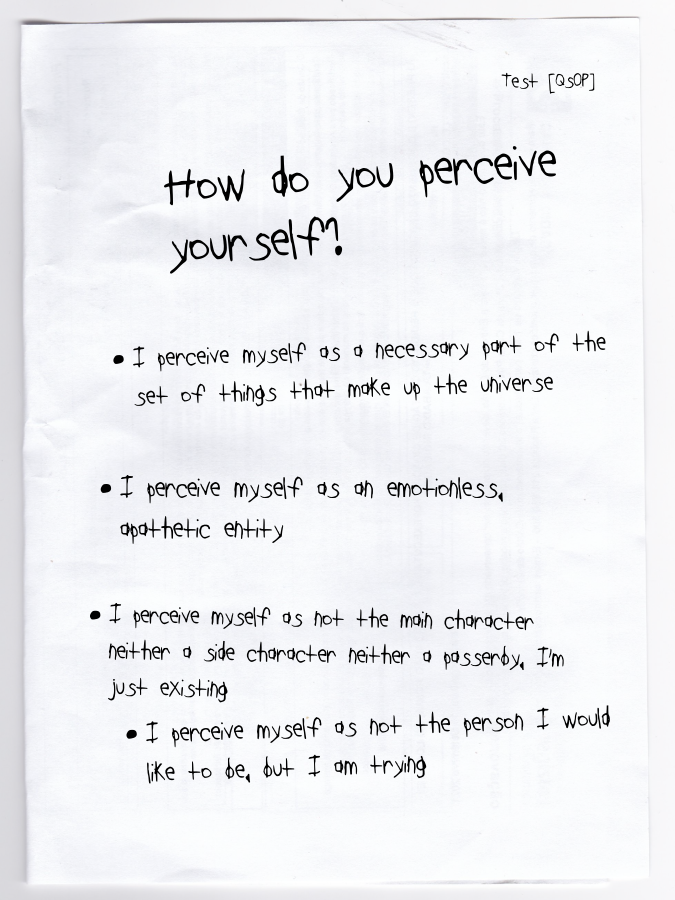 Test [QsOP]
How do you perceive
yourself?
• I perceive myself as a necessary part of the
set of things that make up the universe
• I perceive myself as an emotionless,
apathetic entity
• I perceive myself as not the main character
neither a side character neither a passerby, I'm
just existing
• I perceive myself as not the person I would
like to be, but I am trying